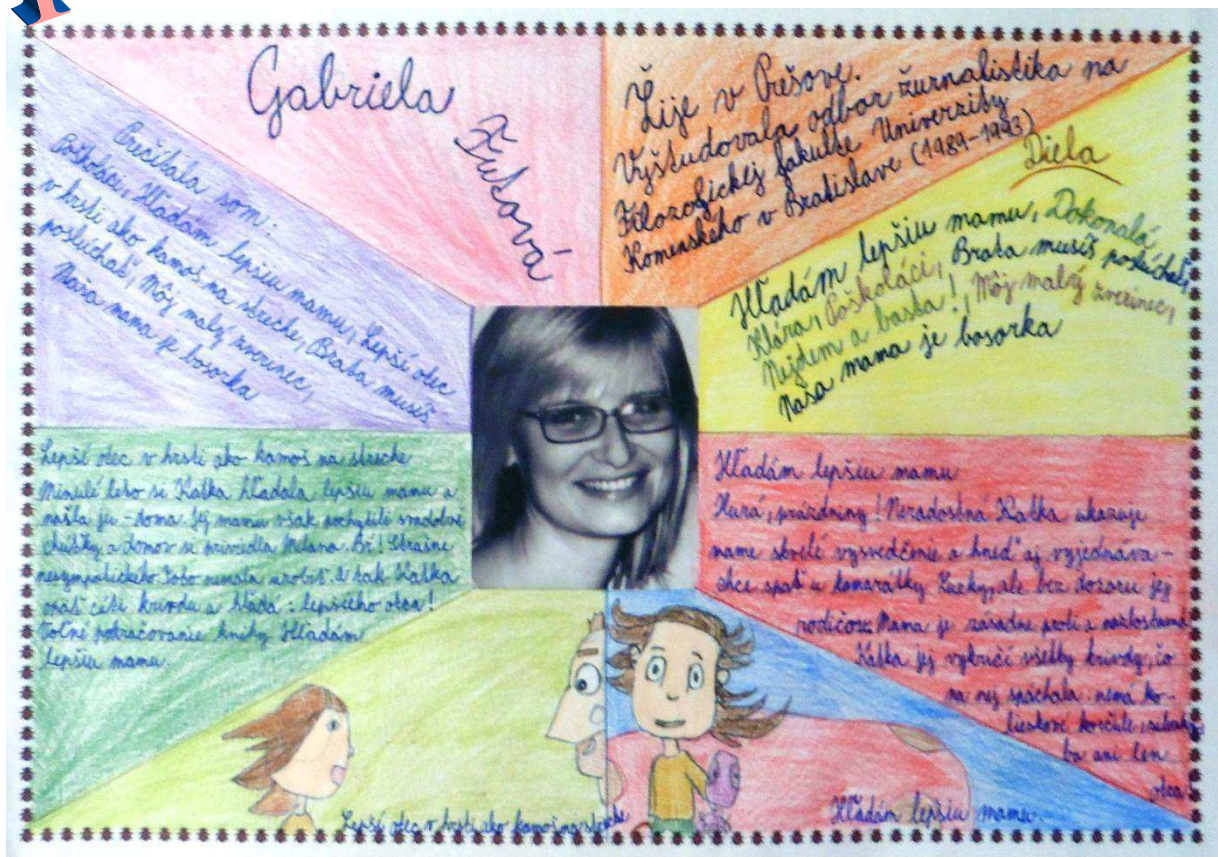 Gabriela
Futová
Žije v Prešove.
Vyštudovala odbor žurnalistika na
Filozofickej fakulte Univerzity
Komenského v Bratislave (1989-1993)
Prečítala som:
Poškoláci, Hľadám lepšiu mamu, Lepší otec
v hrsti ako kamoš na streche, Brata musíš
poslúchať, Môj malý zverinec,
Naša mama je bosorka
Diela
Hľadám lepšiu mamu, Dokonalá
Klára, Poškoláci, Brata musíš poslúchať,
Nejdem a basta!, Môj malý zverinec,
Naša mama je bosorka
Lepší otec v hrsti ako kamoš na streche
Minulé leto si Katka hľadala lepšiu mamu a
našla ju - doma. Jej mamu však pochytili svadobné
chúťky a domov si priviedla Milana. Br! Strašne
nesympatického. Toto nemala urobiť. A tak Katka
opäť cíti krivdu a hľadá: lepšieho otca!
Voľné pokračovanie knihy Hľadám
lepšiu mamu.
Hľadám lepšiu mamu
Hurá, prázdniny! Neradostná Katka ukazuje
mame skvelé vysvedčenie a hneď aj vyjednáva -
chce spať u kamarátky Lucky, ale bez dozoru jej
rodičov. Mama je zásadne proti a nazlostená
Katka jej vykričí všetky krivdy, čo
na nej spáchala: nemá ko-
lieskové korčule,
ba ani len
otca
Lepší otec v hrsti ako kamoš na streche
Hľadám lepšiu mamu.